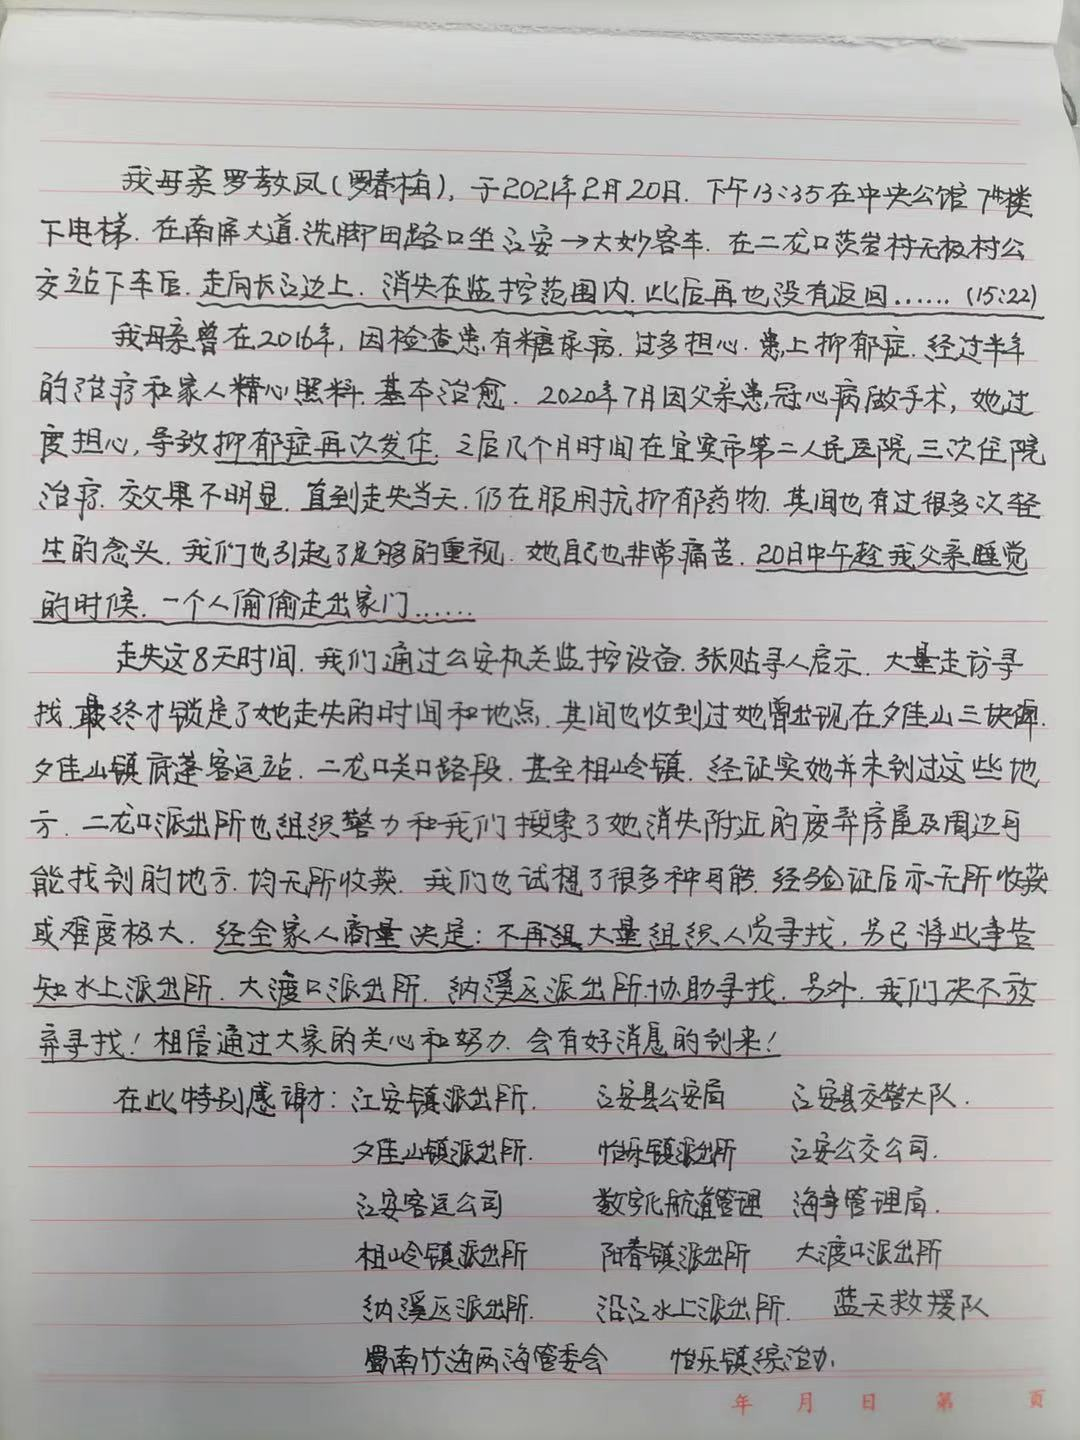 我母亲罗教凤(罗春梅),于2021年2月20日.下午13:35在中央公馆7#楼
下电梯.在南屏大道.洗脚田路口坐江安→大妙客车.在二龙口茨岩村无极村公
交站下车后.走向长江边上.消失在监控范围内.此后再也没有返回……(15:22)
我母亲曾在2016年,因检查患有糖尿病.过多担心.患上抑郁症.经过半年
的治疗和家人精心照料.基本治愈.2020年7月因父亲患冠心病做手术,她过
度担心,导致抑郁症再次发作.之后几个月时间在宜宾市第二人民医院三次住院
治疗.效果不明显.直到走失当天.仍在服用抗抑郁药物.其间也有过很多次轻
生的念头.我们也引起了足够的重视.她自己也非常痛苦.20日中午趁我父亲睡觉
的时候.一个人偷偷走出家门……
走失这8天时间.我们通过公安机关监控设备.张贴寻人启示.大量走访寻
找.最终才锁定了她走失的时间和地点.其间也收到过她曾出现在夕佳山三块碑.
夕佳山镇底蓬客运站.二龙口关口路段.甚至相岭镇.经证实她并未到过这些地
方.二龙口派出所也组织警力和我们搜索了她消失附近的废弃房屋及周边可
能找到的地方.均无所收获.我们也试想了很多种可能.经验证后亦无所收获
或难度极大.经全家人商量决定:不再组大量组织人员寻找,另已将此事告
知水上派出所.大渡口派出所.纳溪区派出所协助寻找.另外.我们决不放
弃寻找!相信通过大家的关心和努力.会有好消息的到来!
在此特别感谢:江安镇派出所. 江安县公安局 江安县交警大队.
夕佳山镇派出所. 怡乐镇派出所 江安公交公司.
江安客运公司 数字化航道管理 海事管理局.
相岭镇派出所 阳春镇派出所 大渡口派出所
纳溪区派出所. 沿江水上派出所. 蓝天救援队
蜀南竹海两海管委会 怡乐镇综治办.
年 月 日 第 页